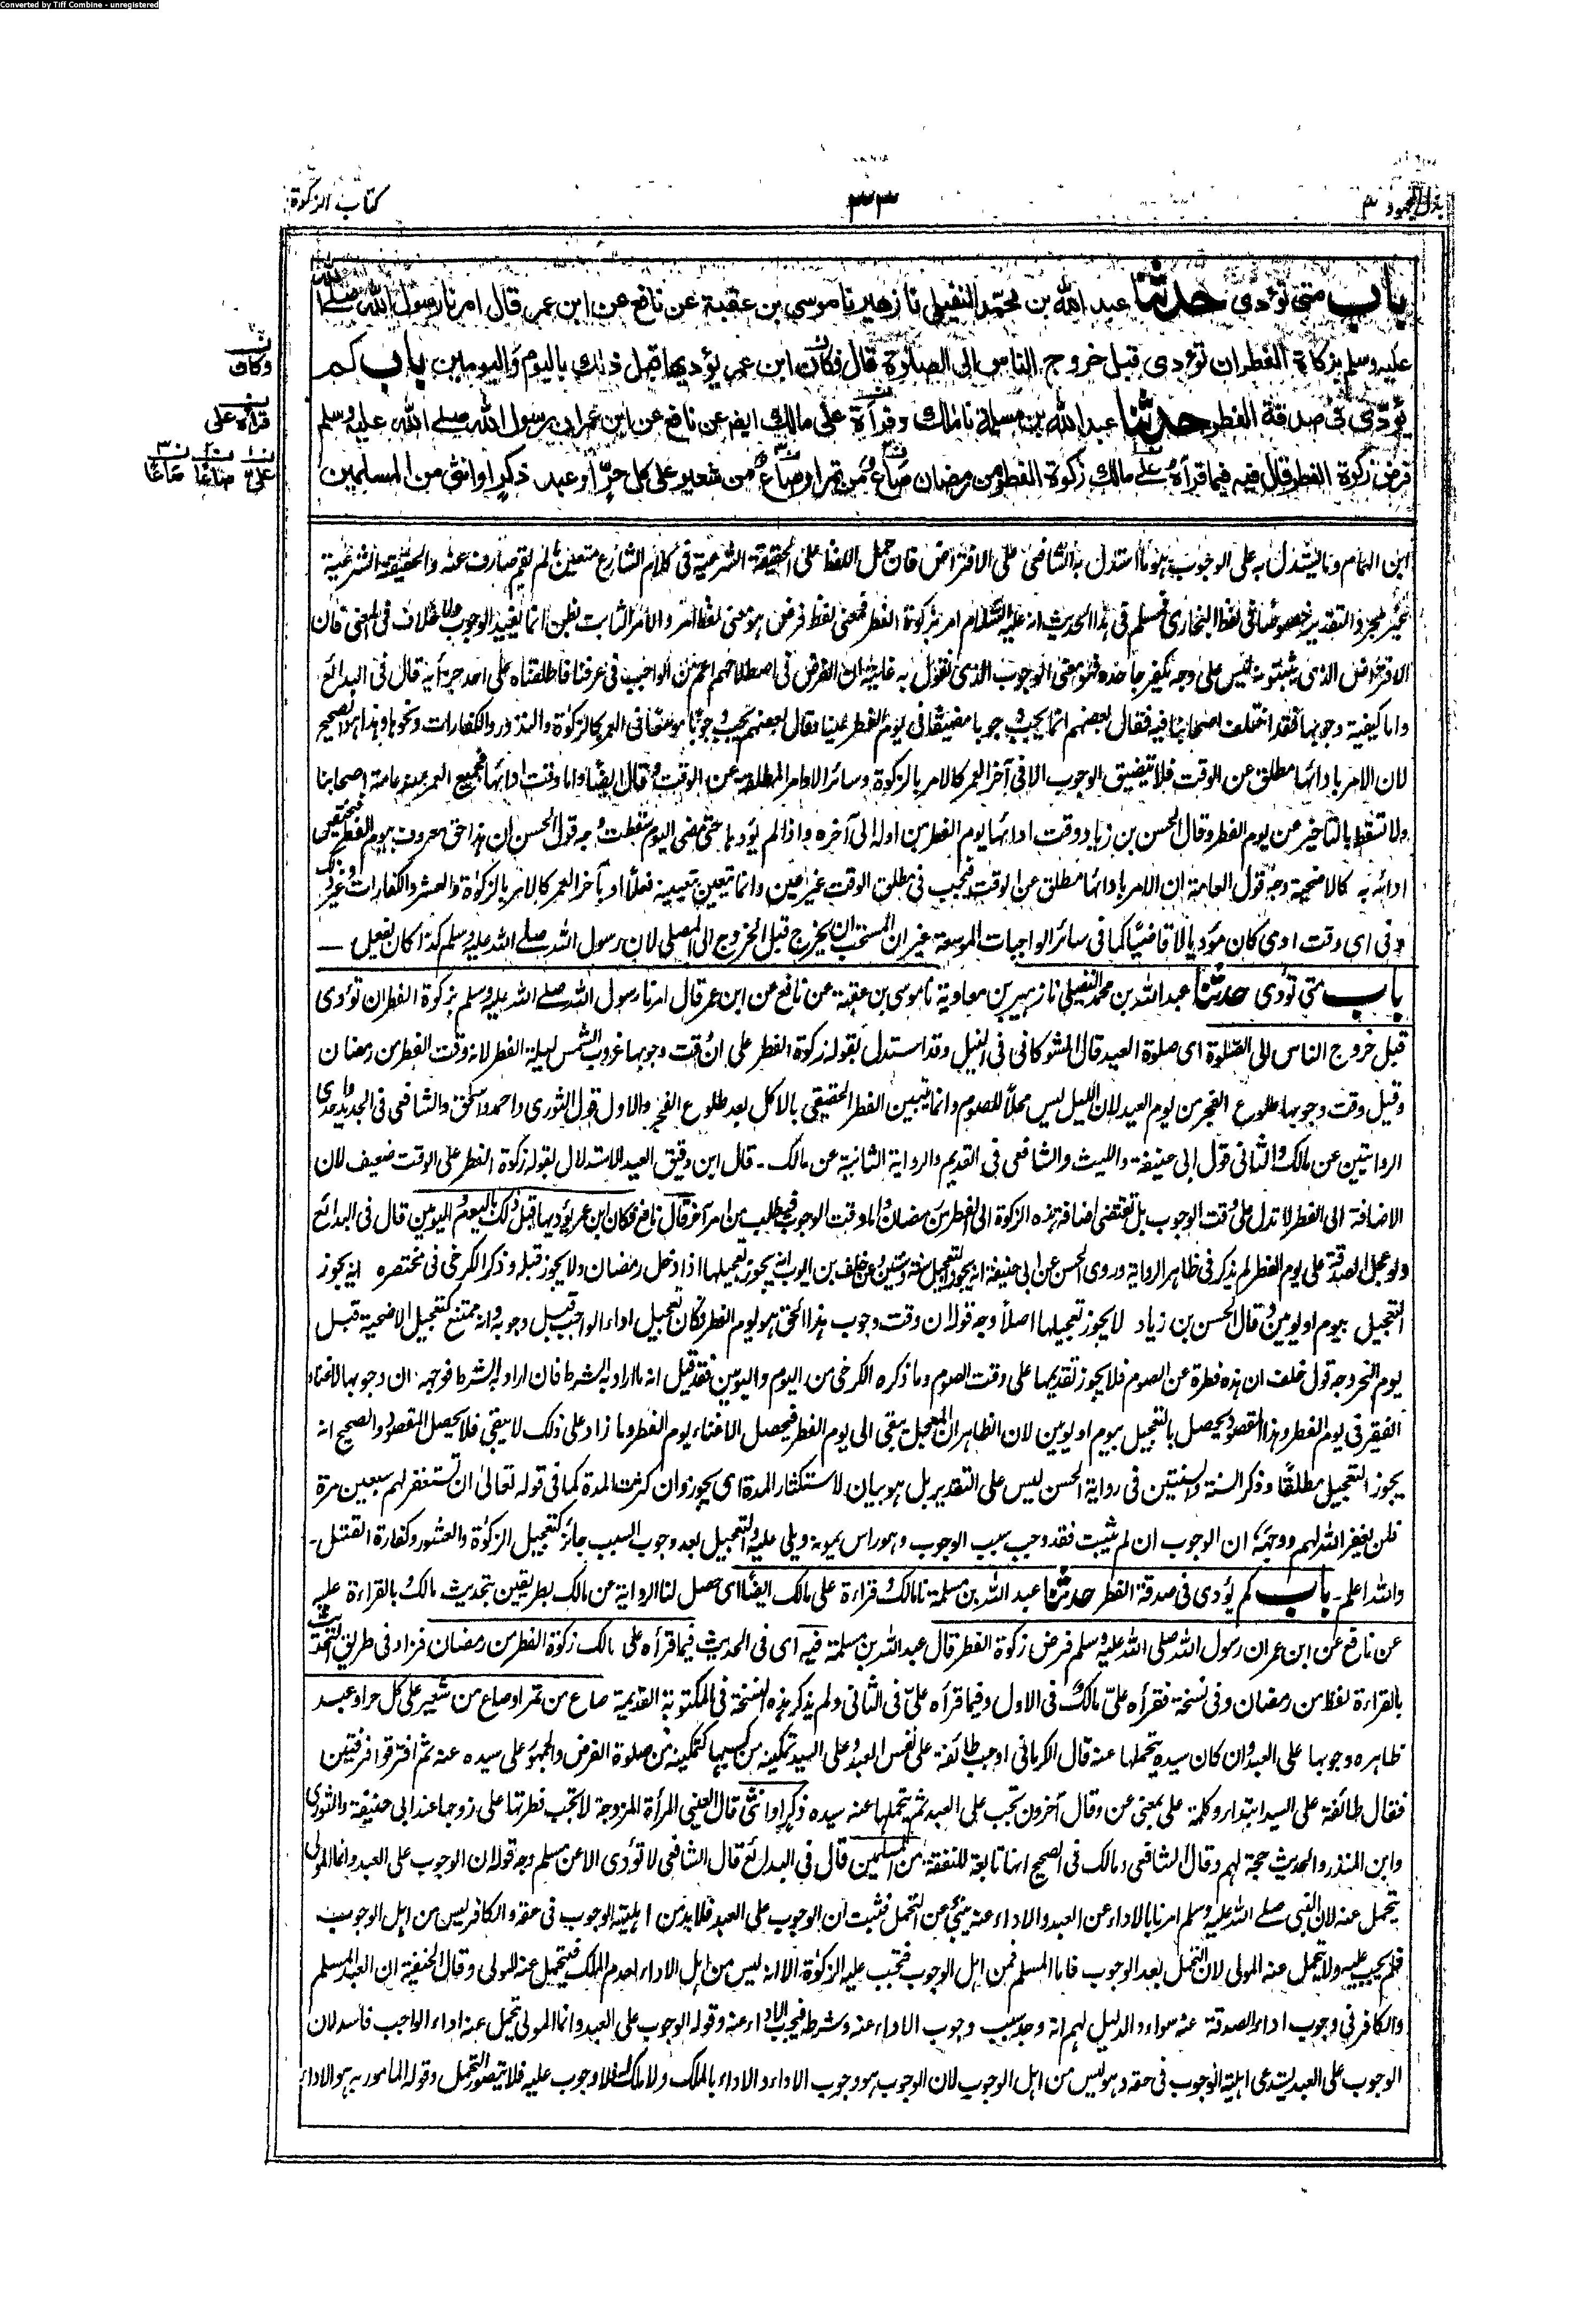 Converted by Tiff Combine - unregistered
بذل المجهود ٣
٣٣
كتاب الزكوة
باب متى تؤدى حدثنا عبد الله بن محمد النفيلى نا زهير نا موسى بن عقبة عن نافع عن ابن عمر قال امرنا رسول الله صلے الله
عليه وسلم بزكاة الفطر ان تؤدى قبل خروج الناس الى الصلوة قال فكان ابن عمر يؤديها قبل ذلك باليوم واليومين باب كم
يؤدى فى صدقة الفطر حدثنا عبد الله بن مسلمة نا مالك وقرأة على مالك ايضا عن نافع عن ابن عمر ان رسول الله صلے الله عليه وسلم
فرض زكوة الفطر قال فيه فيما قرأه علے مالك زكوة الفطر من رمضان صاع من تمر او صاع من شعير على كل حر او عبد ذكر او انثى من المسلمين
وكان
قرأه على
علىّ صاعًا صاعًا
ابن الهمام وما يستدل به على الوجوب هو ما استدل به الشافعى على الافتراض فان حمل اللفظ على الحقيقة الشرعية فى كلام الشارع متعين ما لم يقم صارف عنه والحقيقة الشرعية
غير مجرد التقدير خصوصا فى لفظ البخارى ومسلم فى هذا الحديث انه عليه السلام امر بزكوة الفطر فمعنى لفظ فرض هو معنى لفظ امر والامر الثابت بظن انما يفيد الوجوب ولا خلاف فى المعنى فان
الافتراض الذى يثبتونه ليس على وجه يكفر جاحده فهو معنى الوجوب الذى نقول به غايته ان الفرض فى اصطلاحهم اعم من الواجب فى عرفنا فاطلقناه على احد جزأيه قال فى البدائع
واما كيفية وجوبها فقد اختلف اصحابنا فيه فقال بعضهم انما يجب وجوبا مضيقا فى يوم الفطر عينا وقال بعضهم يجب وجوبا موسعا فى العمر كالزكوة والنذور والكفارات ونحوها وهذا هو الصحيح
لان الامر بادائها مطلق عن الوقت فلا تتضيق الوجوب الا فى آخر العمر كالامر بالزكوة وسائر الاوامر المطلقة عن الوقت وقال ايضا واما وقت ادائها فجميع العمر عند عامة اصحابنا
ولا تسقط بالتاخير عن يوم الفطر وقال الحسن بن زياد وقت ادائها يوم الفطر من اوله الى آخره واذا لم يؤدها حتى مضى اليوم سقطت وجه قول الحسن ان هذا حق معروف بيوم الفطر فيختص
ادائه به كالاضحية وجه قول العامة ان الامر بادائها مطلق عن الوقت فيجب فى مطلق الوقت غير عين وانما يتعين بتعيينه فعلا او بآخر العمر كالامر بالزكوة والعشر والكفارات وغير ذلك
وفى اى وقت ادى كان مؤديا لا قاضيا كما فى سائر الواجبات الموسعة غير ان المستحب ان يخرج قبل الخروج الى المصلى لان رسول الله صلے الله عليه وسلم كذا كان يفعل —
باب متى تؤدى حدثنا عبد الله بن محمد النفيلى نا زهير بن معاوية نا موسى بن عقبة عن نافع عن ابن عمر قال امرنا رسول الله صلے الله عليه وسلم بزكوة الفطر ان تؤدى
قبل خروج الناس الى الصلوة اى صلوة العيد قال الشوكانى فى النيل وقد استدل بقوله زكوة الفطر على ان وقت وجوبها غروب الشمس ليلة الفطر لانه وقت الفطر من رمضان
وقيل وقت وجوبها طلوع الفجر من يوم العيد لان الليل ليس محلا للصوم وانما يتبين الفطر الحقيقى بالاكل بعد طلوع الفجر والاول قول الثورى واحمد واسحق والشافعى فى الجديد واحدى
الروايتين عن مالك والثانى قول ابى حنيفة والليث والشافعى فى القديم والرواية الثانية عن مالك - قال ابن دقيق العيد الاستدلال بقوله زكوة الفطر على الوقت ضعيف لان
الاضافة الى الفطر لا تدل على وقت الوجوب بل تقتضى اضافة هذه الزكوة الى الفطر من رمضان واما وقت الوجوب فيطلب من امر آخر قال نافع فكان ابن عمر يؤديها قبل ذلك باليوم واليومين قال فى البدائع
ولو عجل الصدقة على يوم الفطر لم يذكر فى ظاهر الرواية وروى الحسن عن ابى حنيفة انه يجوز التعجيل سنة وسنتين وعن خلف بن ايوب انه يجوز تعجيلها اذا دخل رمضان ولا يجوز قبله وذكر الكرخى فى مختصره انه يجوز
التعجيل بيوم او يومين وقال الحسن بن زياد لا يجوز تعجيلها اصلا وجه قوله ان وقت وجوب هذا الحق هو يوم الفطر فكان تعجيل اداء الواجب قبل وجوبه وانه ممتنع كتعجيل الاضحية قبل
يوم النحر وجه قول خلف ان هذه فطرة عن الصوم فلا يجوز تقديمها على وقت الصوم وما ذكره الكرخى من اليوم واليومين فقد قيل انه ما اراد به الشرط فان اراد به الشرط فوجهه ان وجوبها لاغناء
الفقير فى يوم الفطر وهذا المقصود يحصل بالتعجيل بيوم او يومين لان الظاهر ان المعجل يبقى الى يوم الفطر فيحصل الاغناء يوم الفطر وما زاد على ذلك لا يبقى فلا يحصل المقصود والصحيح انه
يجوز التعجيل مطلقا وذكر السنة والسنتين فى رواية الحسن ليس على التقدير بل هو بيان لاستكثار المدة اى يجوز وان كثرت المدة كما فى قوله تعالى ان تستغفر لهم سبعين مرة
فلن يغفر الله لهم ووجهه ان الوجوب ان لم يثبت فقد وجب سبب الوجوب وهو راس يمونه ويلى عليه والتعجيل بعد وجوب السبب جائز كتعجيل الزكوة والعشور وكفارة القتل -
والله اعلم - باب كم يؤدى فى صدقة الفطر حدثنا عبد الله بن مسلمة نا مالك وقراءة على مالك ايضا اى حصل لنا الرواية عن مالك بطريقين بتحديث مالك وبالقراءة عليه
عن نافع عن ابن عمر ان رسول الله صلى الله عليه وسلم فرض زكوة الفطر قال عبد الله بن مسلمة فيه اى فى الحديث فيما قرأه على مالك زكوة الفطر من رمضان فزاد فى طريق التحديث
بالقراءة لفظ من رمضان وفى نسخة فقرأه علىّ مالك فى الاول وفيما قرأه علىّ فى الثانى ولم يذكر هذه النسخة فى المكتوبة القديمة صاع من تمر او صاع من شعير على كل حر او عبد
ظاهره وجوبها على العبد وان كان سيده يتحملها عنه قال الكرمانى اوجب طائفة على نفس العبد وعلى السيد تمكينه من كسبها كتمكينه من صلوة الفرض والجمهور على سيده عنه ثم افترقوا فرقتين
فقال طائفة على السيد ابتداء وكلمة على بمعنى عن وقال آخرون تجب على العبد ثم يتحملها عنه سيده ذكر او انثى قال العينى المرأة المزوجة لا تجب فطرتها على زوجها عند ابى حنيفة والثورى
وابن المنذر والحديث حجة لهم وقال الشافعى ومالك فى الصحيح انها تابعة للنفقة من المسلمين قال فى البدائع قال الشافعى لا تؤدى الا عن مسلم وجه قوله ان الوجوب على العبد وانما المولى
يتحمل عنه لان النبى صلے الله عليه وسلم امرنا بالاداء عن العبد والاداء عنه ينبئ عن التحمل فثبت ان الوجوب على العبد فلا بد من اهلية الوجوب فى حقه والكافر ليس من اهل الوجوب
فلم يجب عليه ولا يتحمل عنه المولى لان التحمل بعد الوجوب فاما المسلم فمن اهل الوجوب فتجب عليه الزكوة الا انه ليس من اهل الاداء لعدم الملك فيتحمل عنه المولى وقال الحنفية ان العبد المسلم
والكافر فى وجوب اداء الصدقة عنه سواء والدليل لهم انه وجد سبب وجوب الاداء عنه وشرطه فيجب الاداء عنه وقوله الوجوب على العبد وانما المولى يتحمل عنه اداء الواجب فاسد لان
الوجوب على العبد يستدعى اهلية الوجوب فى حقه وهو ليس من اهل الوجوب لان الوجوب هو وجوب الاداء والاداء بالملك ولا ملك له فلا وجوب عليه فلا يتصور التحمل وقوله المامور به هو الاداء